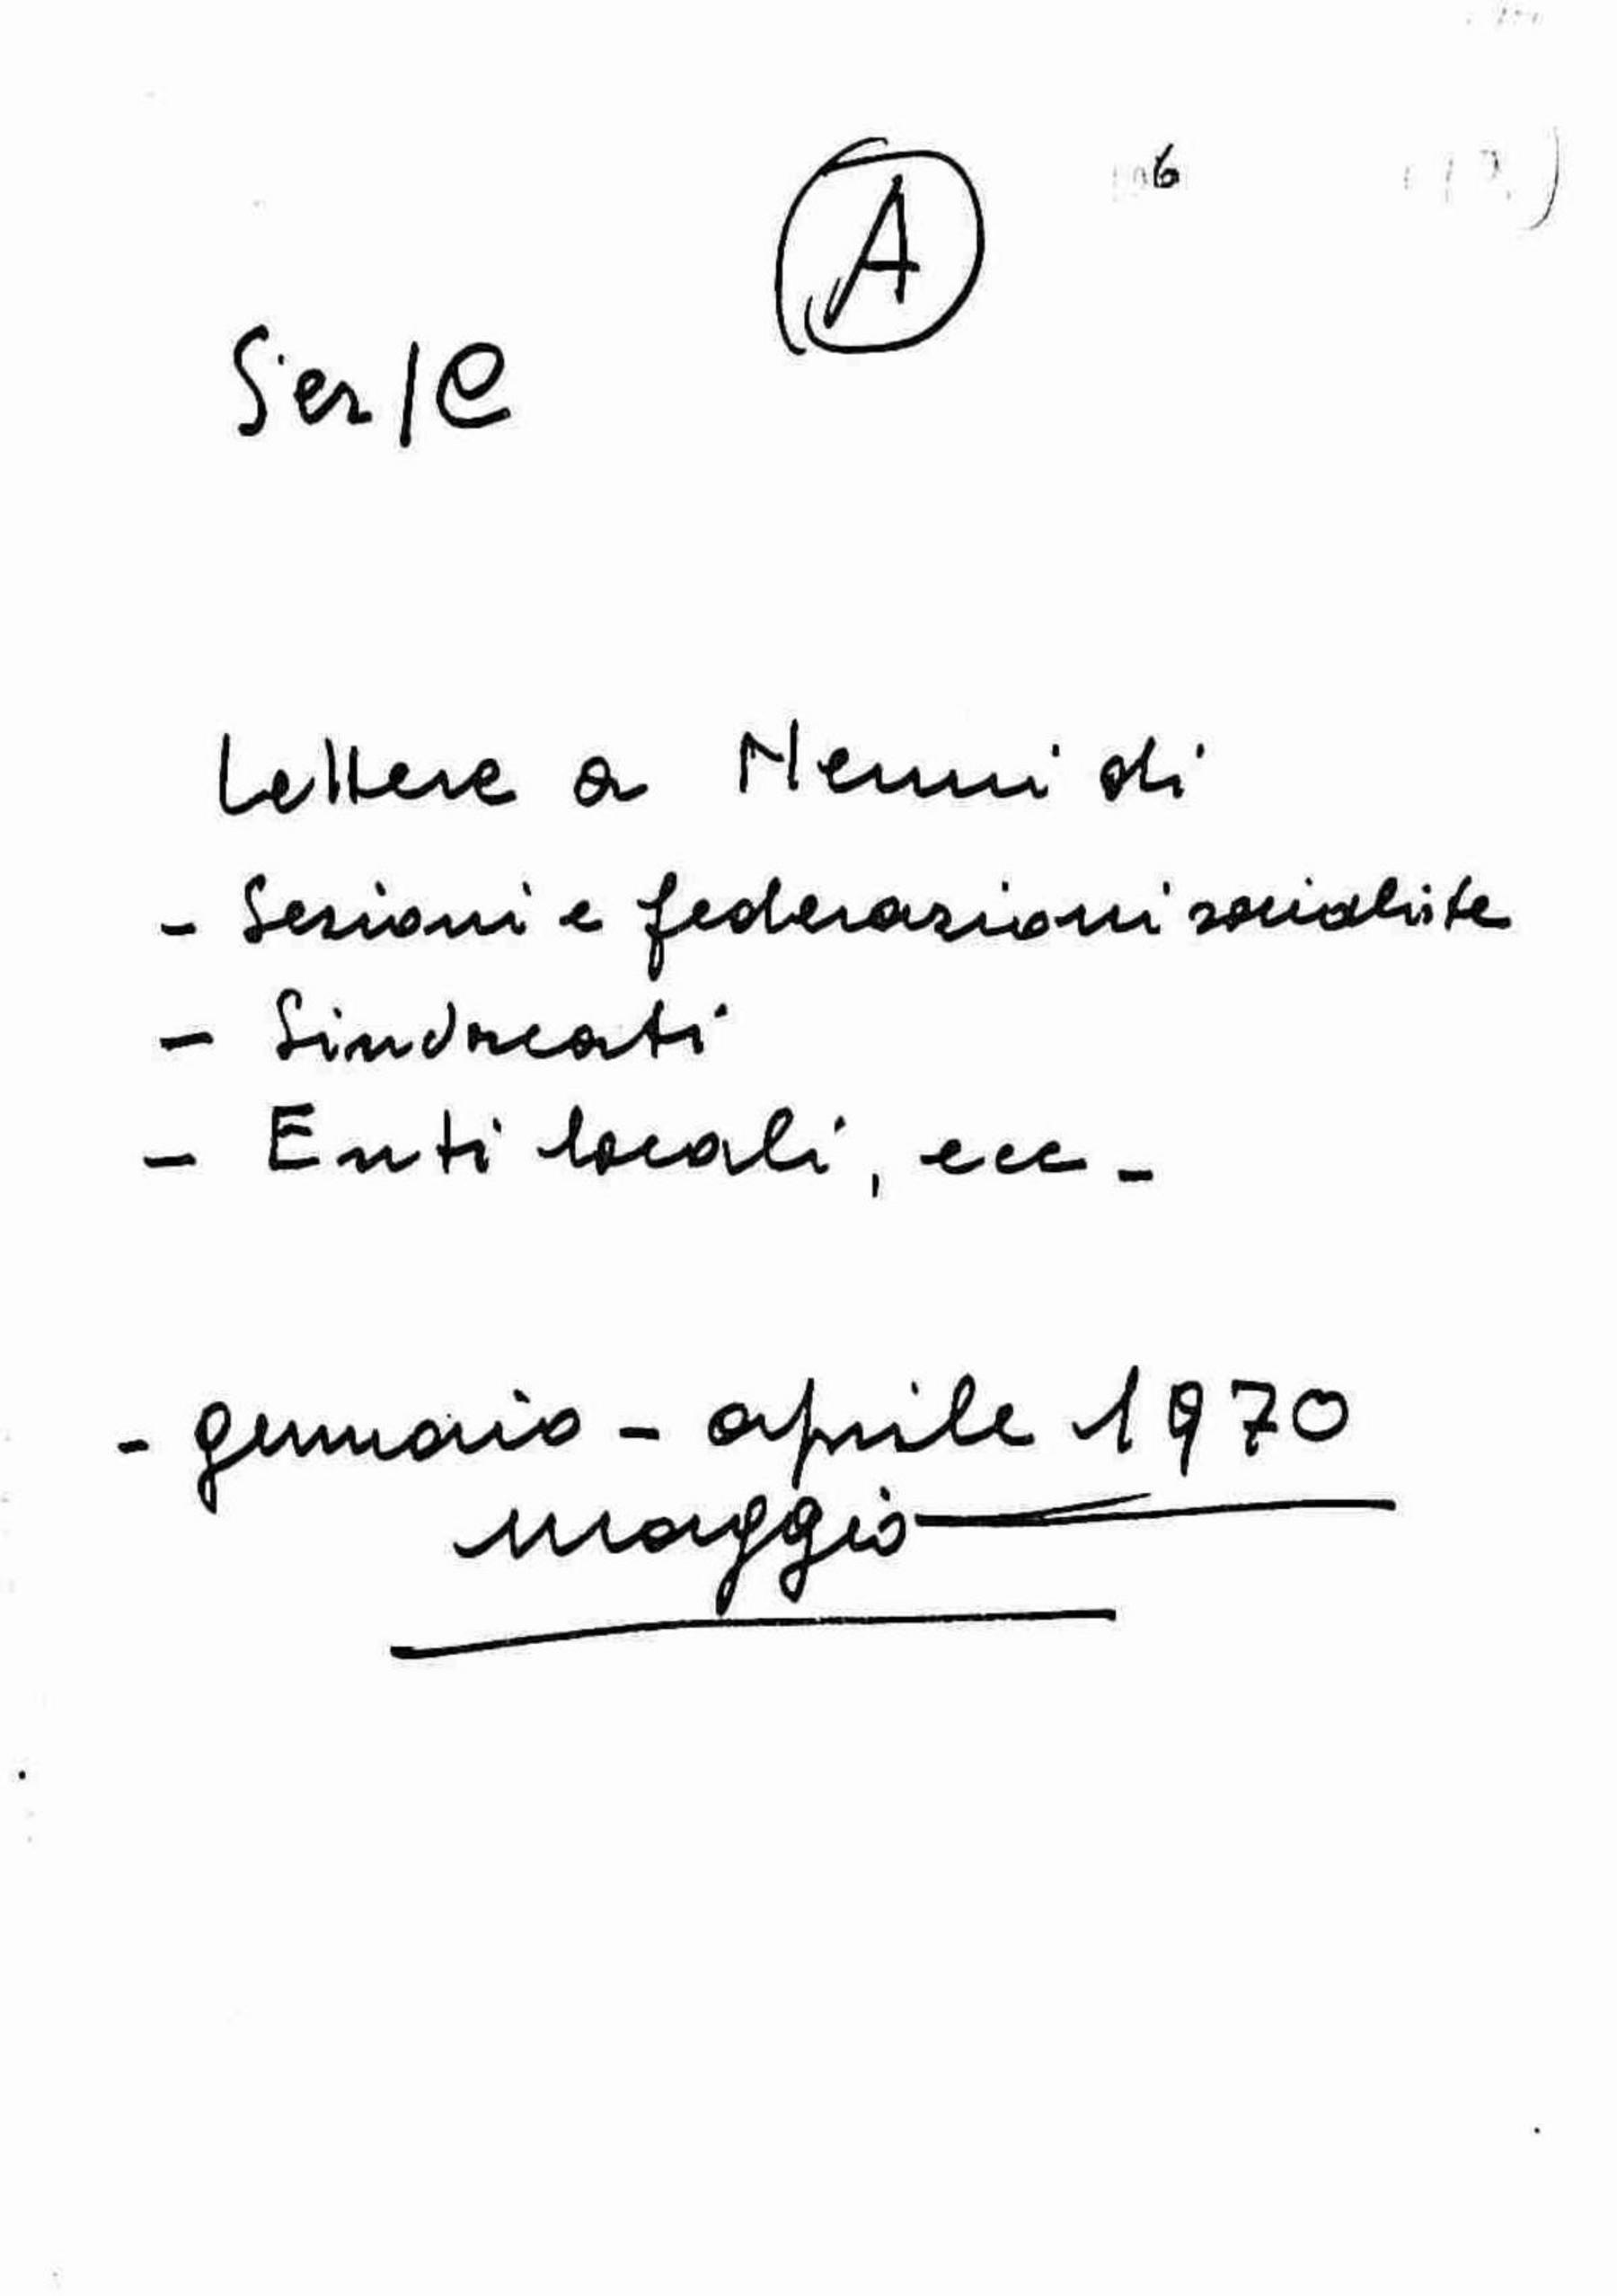 A
6
Ser/C
Lettere a Nenni di
- Sezioni e federazioni socialiste
- Sindacati
- Enti locali, ecc -
- gennaio - aprile 1970
maggio